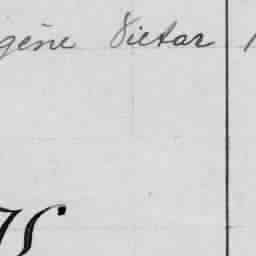 gène Victor